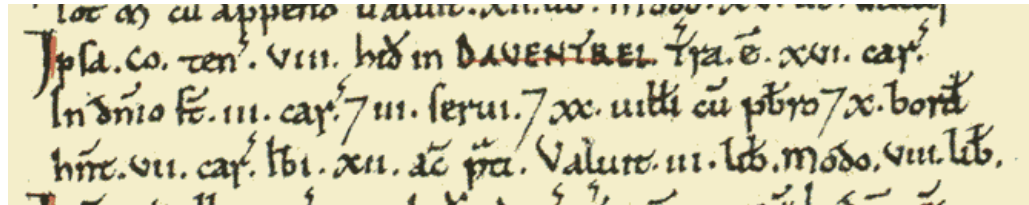 Ipsa. Co. teń. VIII. hiđ in DAVENTREL. Tra. ē. xvi. car̃.
In dñio sť. iii. car̃. ⁊ iii. serui. ⁊ xx. uiłłi cū pƀro ⁊ x. borđ
hñt. vii. car̃. Iƀi. xii. ac̃ p̃ti. Valuit. iii. liƀ. Modo. viii. liƀ.